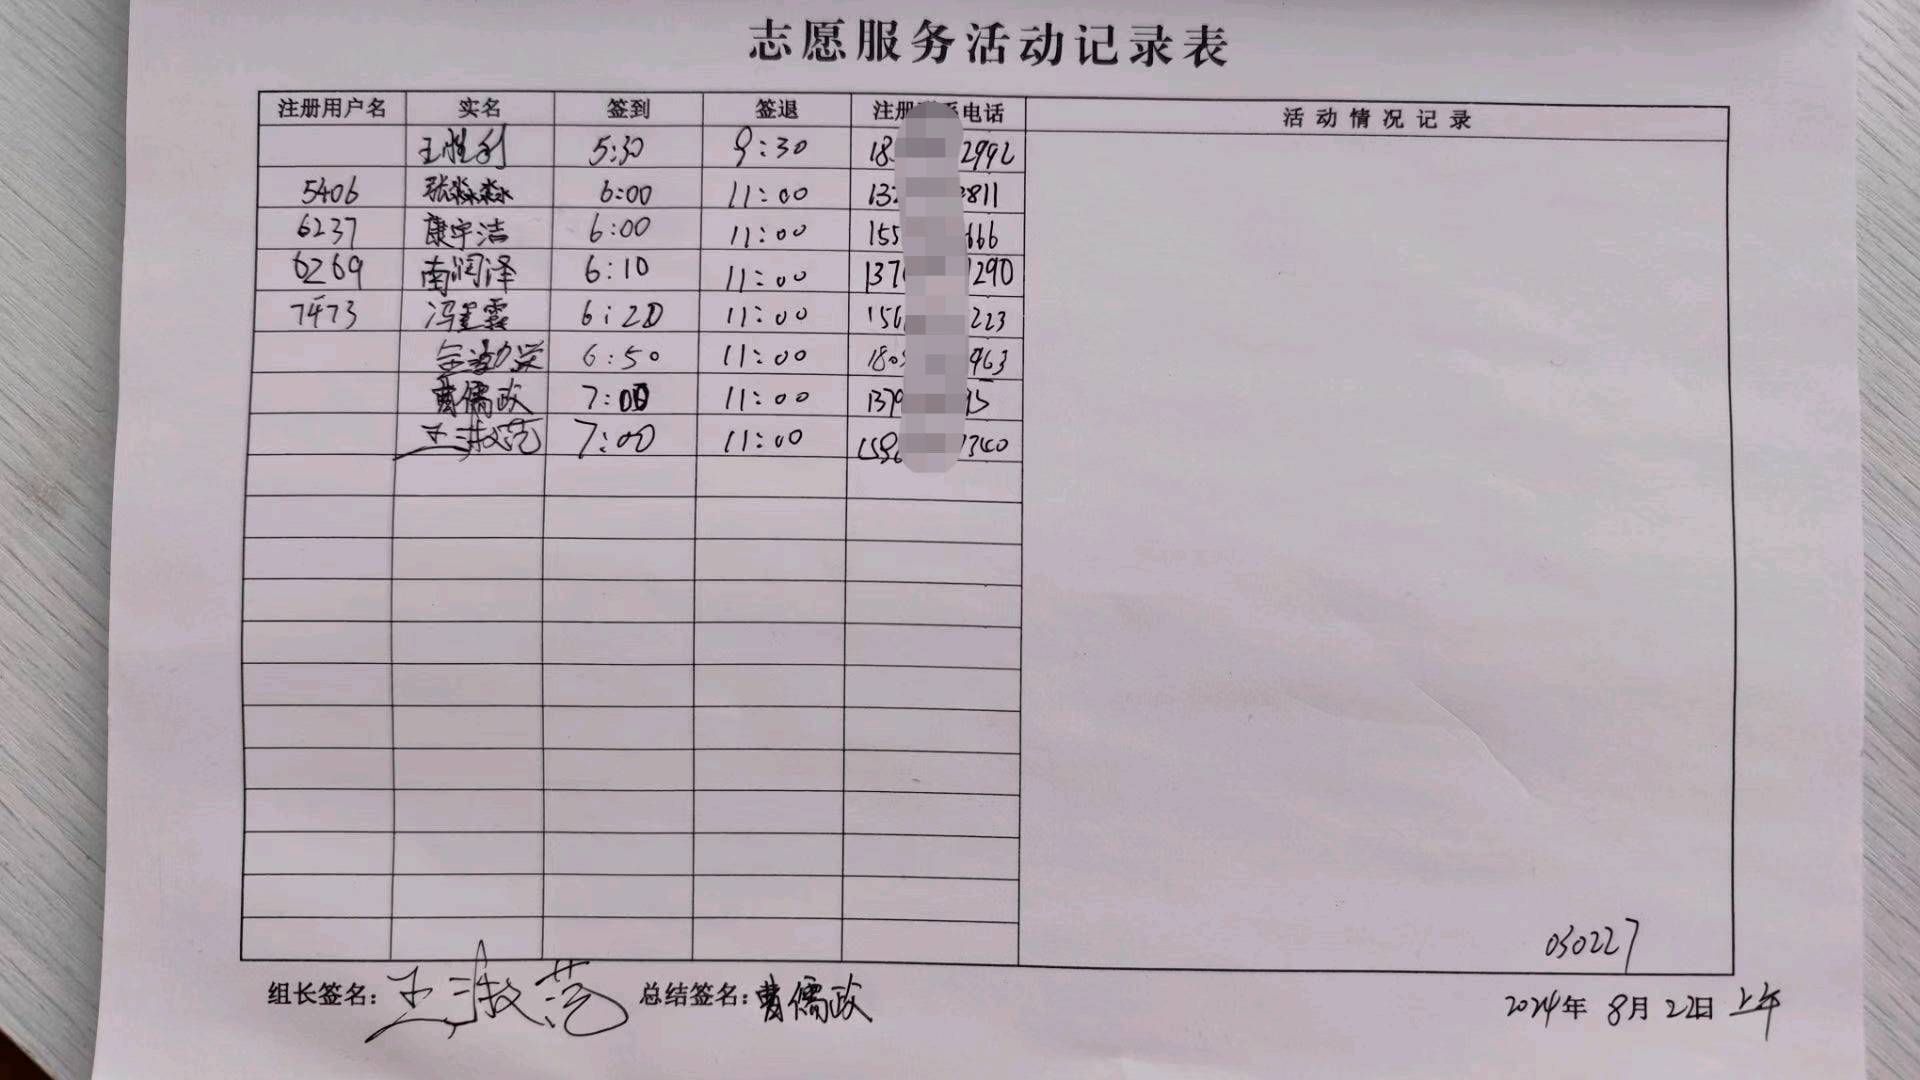 志愿服务活动记录表
注册用户名 实名 签到 签退 注册 电话 活动情况记录
王胜利 5:30 9:30 18 2992
5406 张淼淼 6:00 11:00 13 811
6237 康宇洁 6:00 11:00 155 666
6269 南润泽 6:10 11:00 137 1290
7473 冯 霖 6:20 11:00 156 223
6:50 11:00 180 963
曹儒政 7:00 11:00 1379 15
王淑范 7:00 11:00 1586 1340
030227
组长签名: 王淑范 总结签名: 曹儒政
2024年 8月 22日 上午